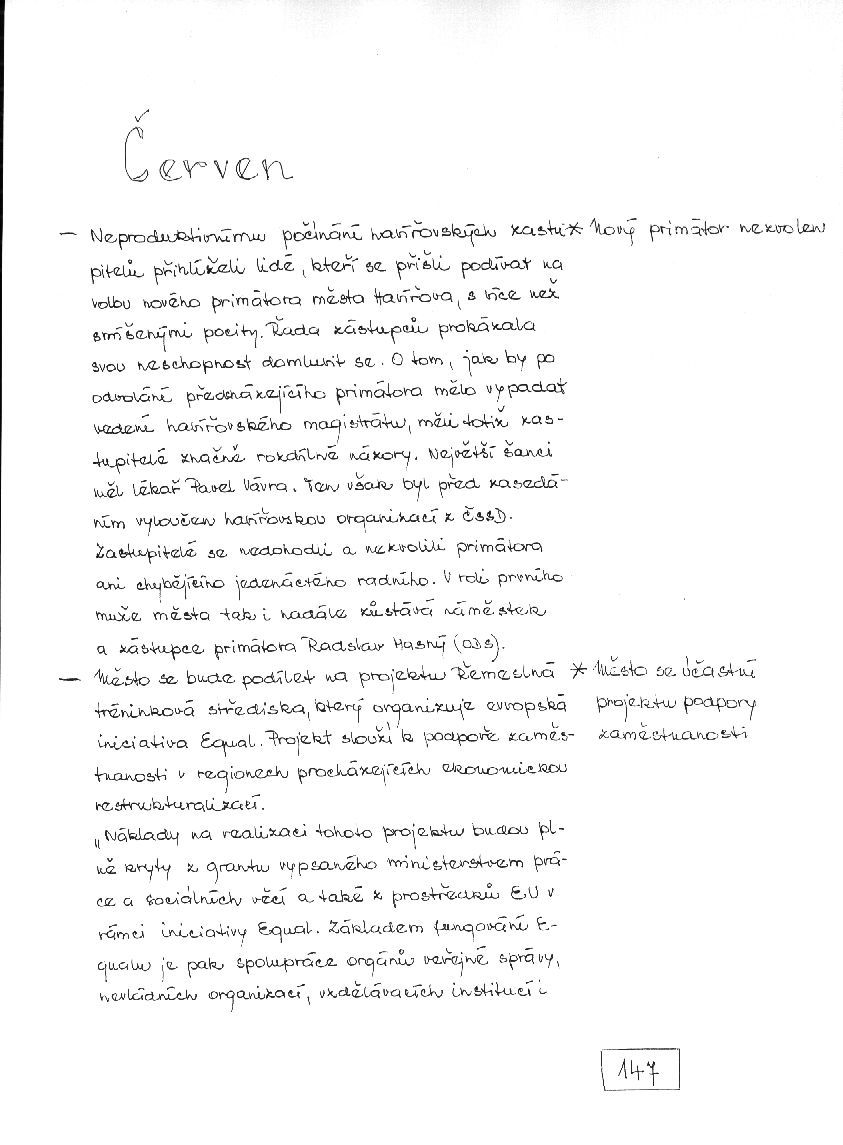 Červen
— Neproduktivnímu počínání havířovských zastu- * Nový primátor nezvolen
pitelů přihlíželi lidé, kteří se přišli podívat na
volbu nového primátora města Havířova, s více než
smíšenými pocity. Řada zástupců prokázala
svou neschopnost domluvit se. O tom, jak by po
odvolání předcházejícího primátora mělo vypadat
vedení havířovského magistrátu, měli totiž zas-
tupitelé značně rozdílné názory. Největší šanci
měl lékař Pavel Vávra. Ten však byl před zasedá-
ním vyloučen havířovskou organizací z ČSSD.
Zastupitelé se nedohodli a nezvolili primátora
ani chybějícího jedenáctého radního. V roli prvního
muže města tak i nadále zůstává náměstek
a zástupce primátora Radslav Hasný (ODS).
— Město se bude podílet na projektu Řemeslná * Město se účastní
tréninková střediska, který organizuje evropská projektu podpory
iniciativa Equal. Projekt slouží k podpoře zaměs- zaměstnanosti
tnanosti v regionech procházejících ekonomickou
restrukturalizací.
„Náklady na realizaci tohoto projektu budou pl-
ně kryty z grantu vypsaného ministerstvem prá-
ce a sociálních věcí a také z prostředků EU v
rámci iniciativy Equal. Základem fungování E-
qualu je pak spolupráce orgánů veřejné správy,
nevládních organizací, vzdělávacích institucí i
147